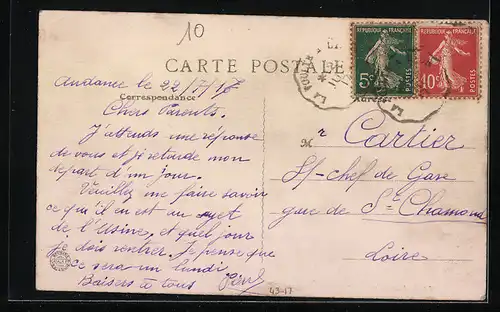 10
CARTE POSTALE
REPUBLIQUE FRANÇAISE
5c
POSTES
REPUBLIQUE FRANÇAISE
10c
POSTES
Andance le 22/7/18
Correspondance
Chers Parents.
J'attends une réponse
de vous et je retarde mon
départ d'un jour.
Veuillez me faire savoir
ce qu'il en est au sujet
de l'Usine, et quel jour
je dois rentrer. Je pense que
ce sera un lundi
Baisers à tous
43-17
Adresse
M r Cartier
S/-chef de Gare
gare de St Chamond
Loire